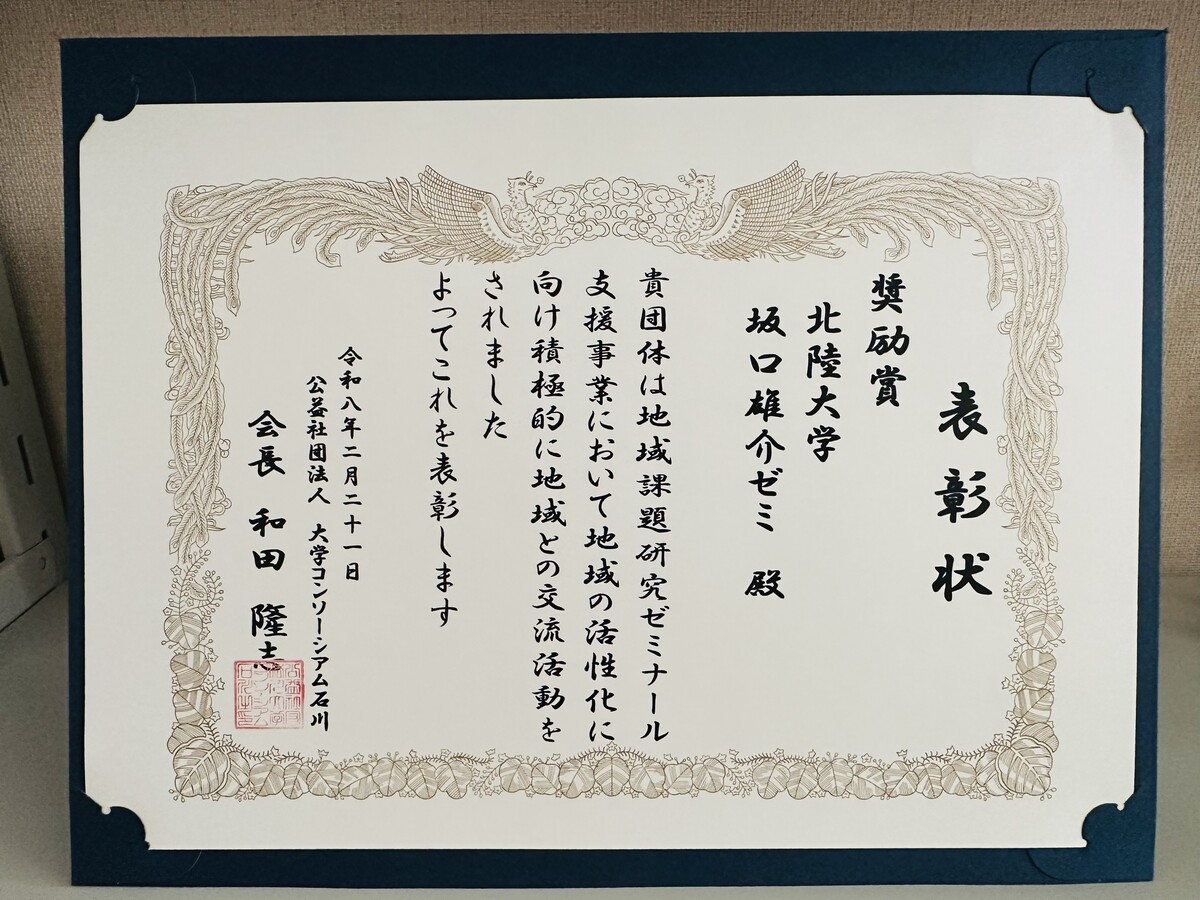 表彰状
奨励賞
北陸大学
坂口雄介ゼミ 殿
貴団体は地域課題研究ゼミナール
支援事業において地域の活性化に
向け積極的に地域との交流活動を
されました
よってこれを表彰します
令和八年二月二十一日
公益社団法人 大学コンソーシアム石川
会長 和田 隆志